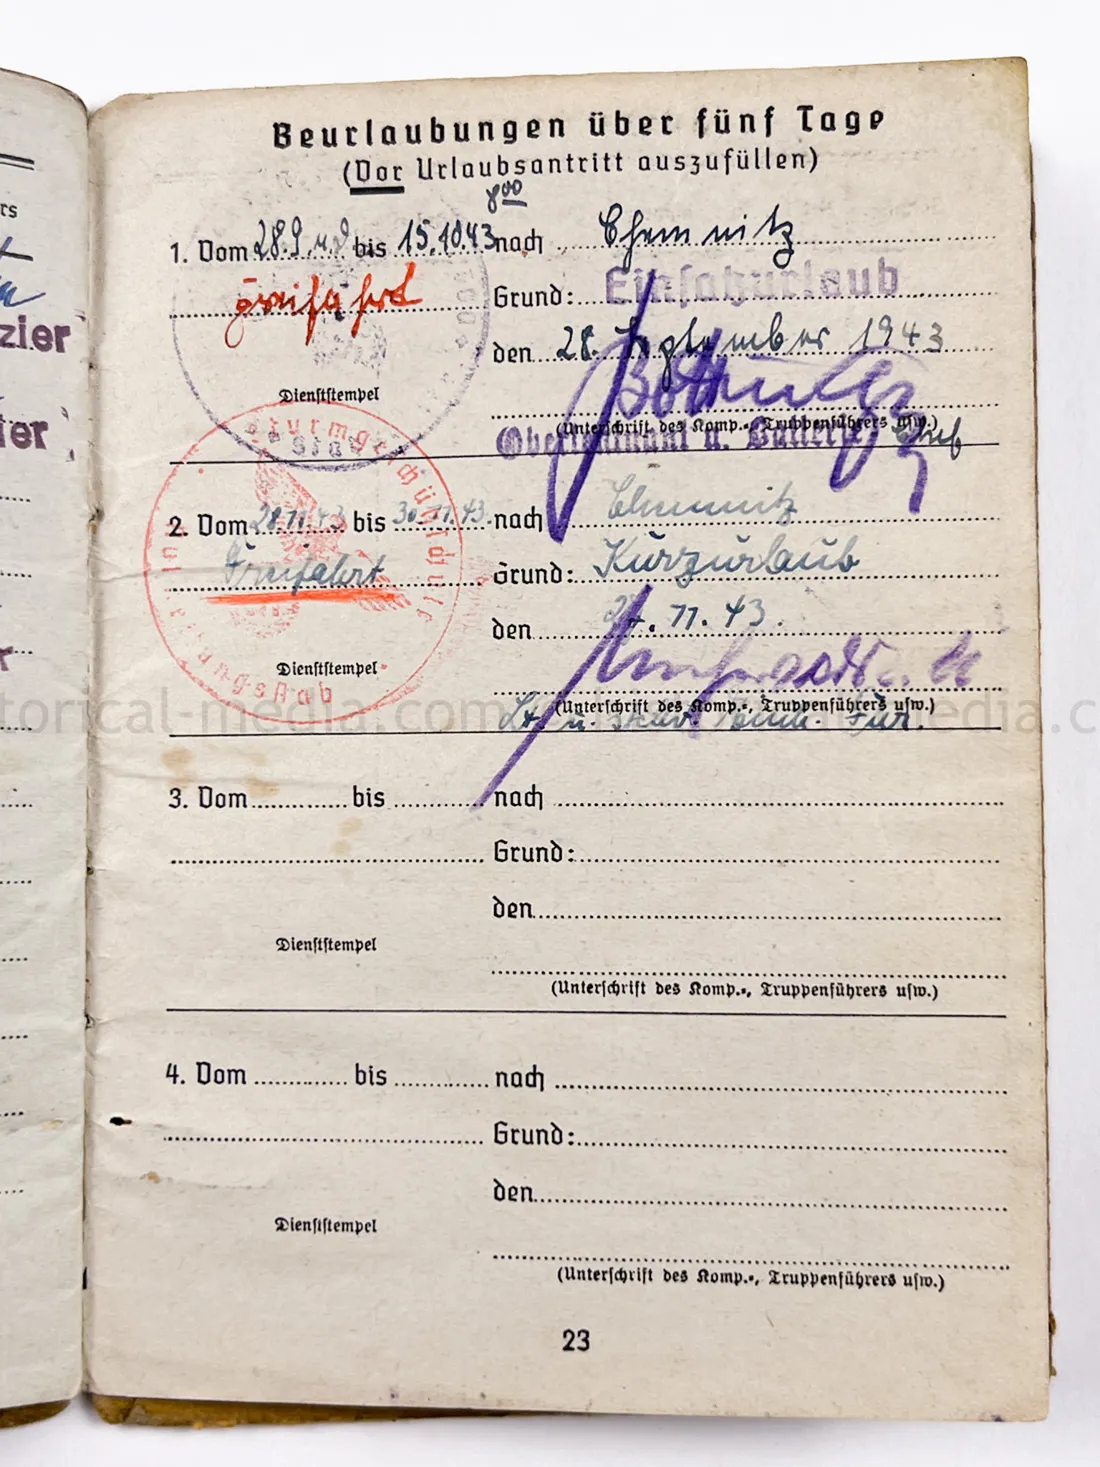 rs
zier
ter
r
Beurlaubungen über fünf Tage
(Vor Urlaubsantritt auszufüllen)
8⁰⁰
1. Vom 28.9. bis 15.10.43 nach Chemnitz
Freifahrt
Grund: Einsatzurlaub
den 28. September 1943
Dienststempel
(Unterschrift des Komp.-, Truppenführers usw.)
Oberleutnant u. Batterie Chef
Sturmgeschützschule
Stab
2. Vom 28.11.43 bis 30.11.43. nach Chemnitz
Freifahrt
Grund: Kurzurlaub
den 27.11.43.
Dienststempel
(Unterschrift des Komp.-, Truppenführers usw.)
Lt. u.
historical-media.com
3. Vom bis nach
Grund:
den
Dienststempel
(Unterschrift des Komp.-, Truppenführers usw.)
4. Vom bis nach
Grund:
den
Dienststempel
(Unterschrift des Komp.-, Truppenführers usw.)
23